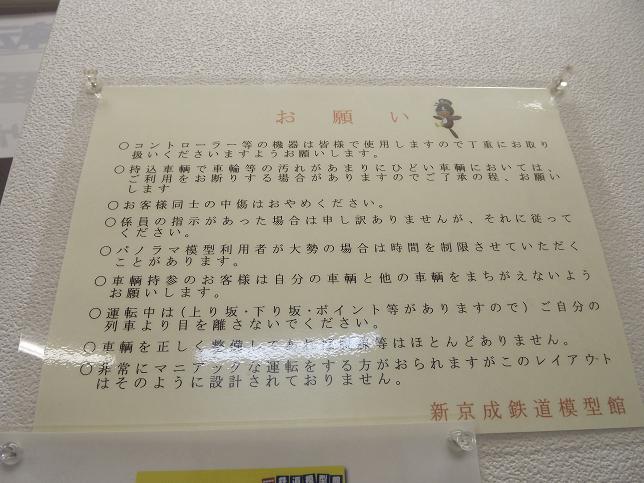 お願い
○コントローラー等の機器は皆様で使用しますので丁重にお取り
扱いくださいますようお願いします。
○持込車輌で車輪等の汚れがあまりにひどい車輌においては、
ご利用をお断りする場合がありますのでご了承の程、お願い
します
○お客様同士の中傷はおやめください。
○係員の指示があった場合は申し訳ありませんが、それに従って
ください。
○パノラマ模型利用者が大勢の場合は時間を制限させていただく
ことがあります。
○車輌持参のお客様は自分の車輌と他の車輌をまちがえないよう
お願いします。
○運転中は(上り坂・下り坂・ポイント等がありますので)ご自分の
列車より目を離さないでください。
○車輌を正しく整備して 等はほとんどありません。
○非常にマニアックな運転をする方がおられますがこのレイアウト
はそのように設計されておりません。
新京成鉄道模型館